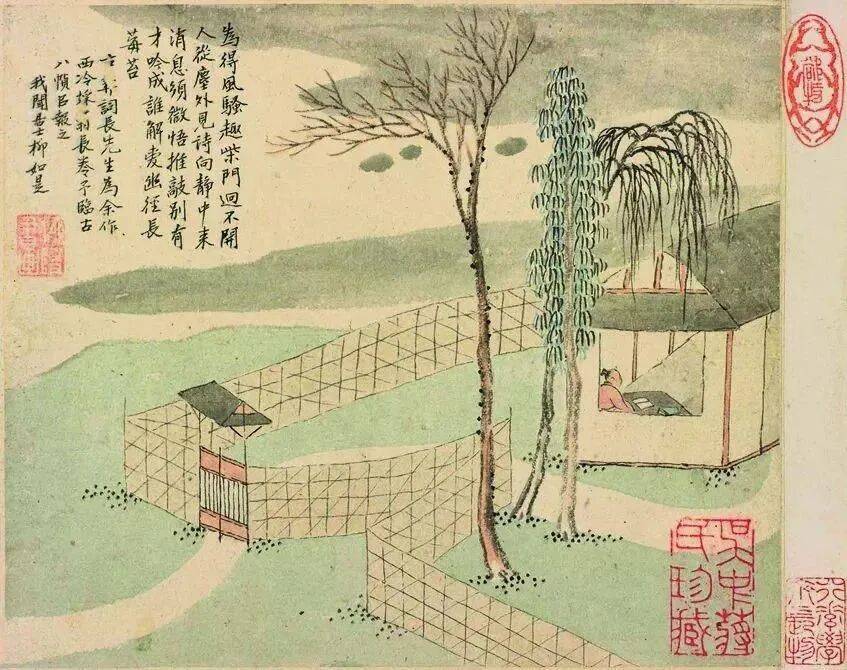 為得風騷趣柴門迥不開
人從塵外見詩向靜中来
消息須微悟推敲別有
才吟成誰解愛幽徑長
莓苔
詞長先生為余作
西冷採長卷予臨古
八幀㠯報之
我聞居士柳如是
吳中蔣
氏珍藏